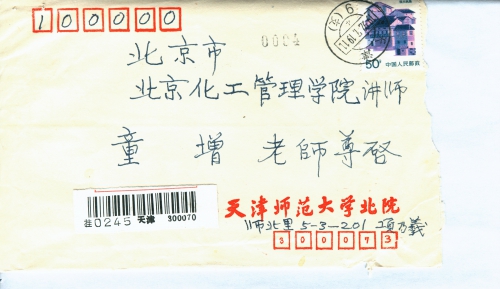 100000
0004
北京市
50分
中国人民邮政
北京化工管理学院讲师
童增 老師尊啓
挂0245 天津 300070
天津师范大学北院
师北里5-3-201 項乃義
300073